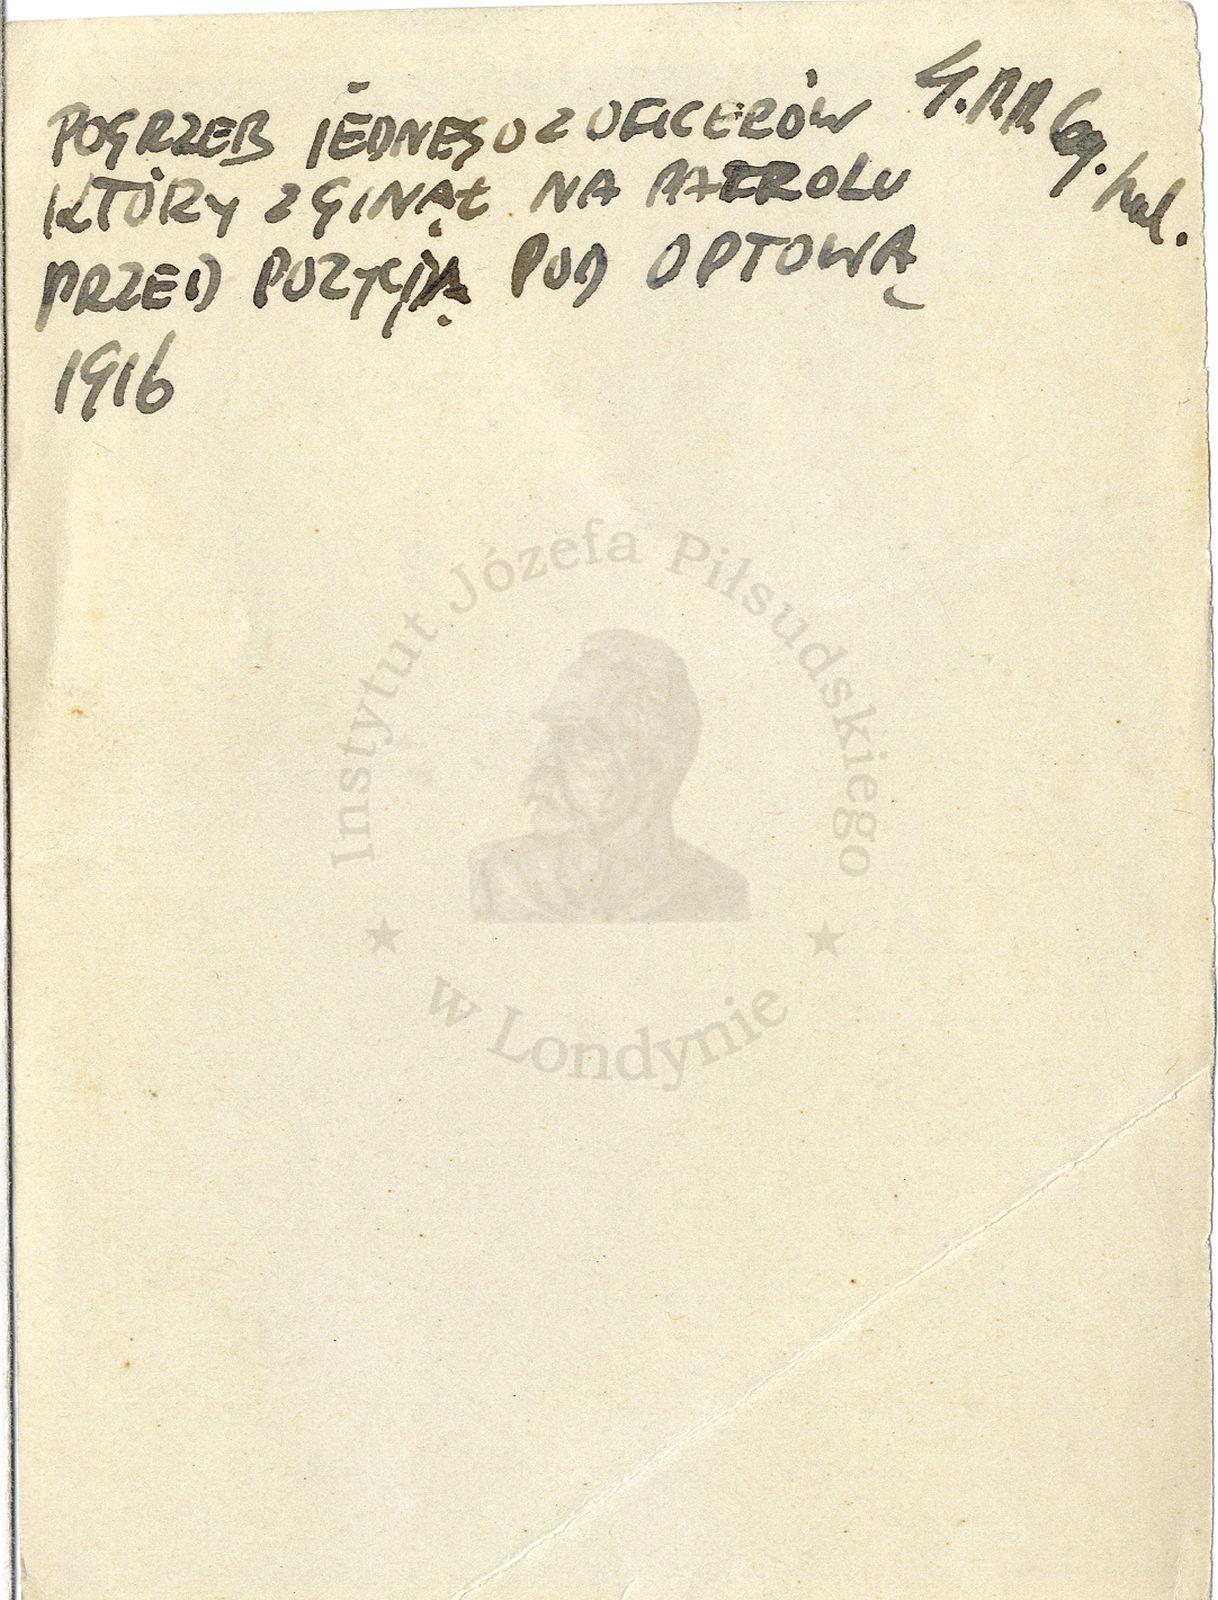 POGRZEB JEDNEGO Z OFICERÓW 4.P.P. Leg.
KTÓRY ZGINĄŁ NA PATROLU
PRZED POZYCJĄ POD OPTOWĄ
1916
Instytut Józefa Piłsudskiego
★ w Londynie ★